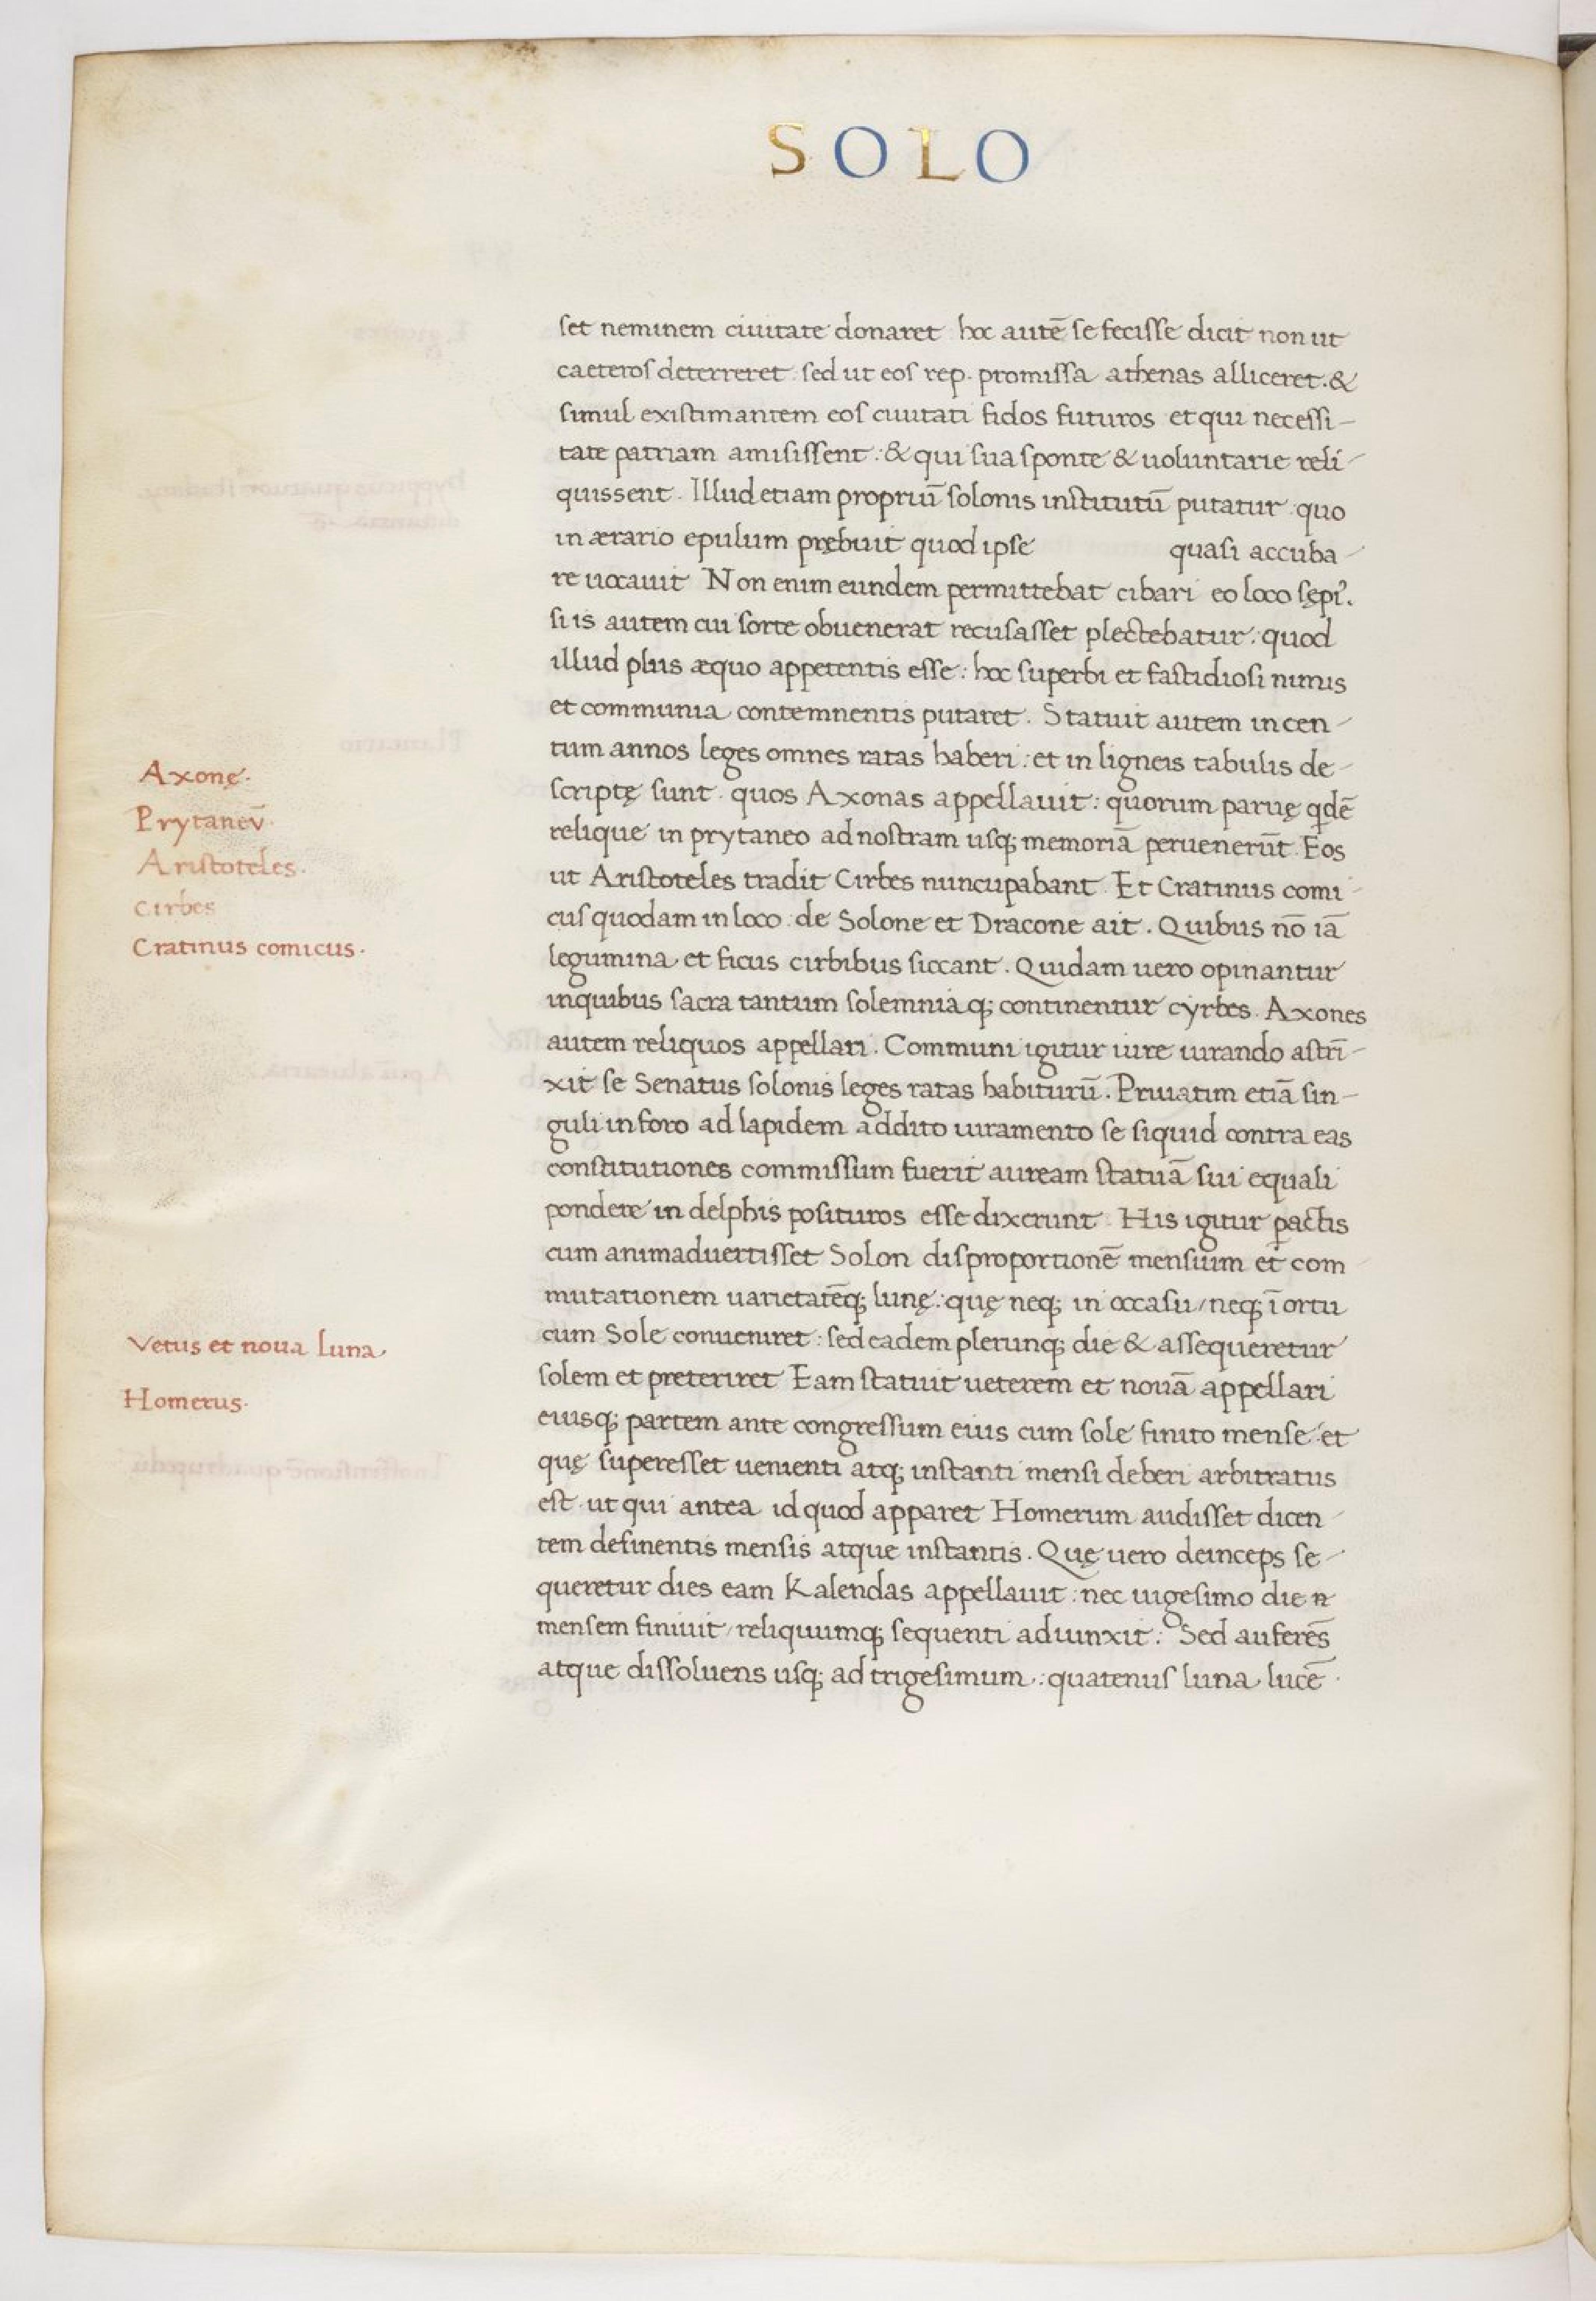 SOLO
set neminem ciuitate donaret hoc autē se fecisse dicit non ut
caeteros deterreret sed ut eos rep. promissa athenas alliceret. &
simul existimantem eos ciuitati fidos futuros et qui necessi-
tate patriam amisissent: & qui sua sponte & uoluntarie reli-
quissent. Illud etiam propriū solonis institutū putatur quo
in ærario epulum prębuit quod ipse quasi accuba-
re uocauit Non enim eundem permittebat cibari eo loco sępiꝰ.
si is autem cui sorte obuenerat recusasset plectebatur: quod
illud plus æquo appetentis esse: hoc superbi et fastidiosi nimis
et communia contemnentis putaret. Statuit autem in cen-
tum annos leges omnes ratas haberi: et in ligneis tabulis de-
scriptę sunt quos Axonas appellauit: quorum paruę qdē
relique in prytaneo ad nostram usq; memoriā peruenerūt. Eos
ut Aristoteles tradit Cirbes nuncupabant Et Cratinus comi-
cus quodam in loco de Solone et Dracone ait. Quibus nō iā
legumina et ficus cirbibus siccant. Quidam uero opinantur
inquibus sacra tantum solemniaq; continentur cyrbes. Axones
autem reliquos appellari. Communi igitur iure iurando astrī-
xit se Senatus solonis leges ratas habiturū. Priuatim etiā sin-
guli in foro ad lapidem addito iuramento se siquid contra eas
constitutiones commissum fuerit auream statuā sui equali
pondere in delphis posituros esse dixerunt. His igitur pactis
cum animaduertisset Solon disproportionē mensium et com
mutationem uarietatēq; lunę: quę neq; in occasu/neq; ī ortu
cum Sole conueniret: sed eadem plerunq; die & assequeretur
solem et preteriret Eam statuit ueterem et nouā appellari
eiusq; partem ante congressum eius cum sole finito mense et
quę superesset uenienti atq; instanti mensi deberi arbitratus
est ut qui antea id quod apparet Homerum audisset dicen-
tem definentis mensis atque instantis. Quę uero deinceps se-
queretur dies eam Kalendas appellauit: nec uigesimo die
mensem finiuit/reliquumq; sequenti adiunxit: Sed auferēs
atque dissoluens usq; ad trigesimum: quatenus luna lucē
Axonę.
Prytanēv.
Aristoteles.
Cirbes
Cratinus comicus.
Vetus et noua Luna
Homerus.